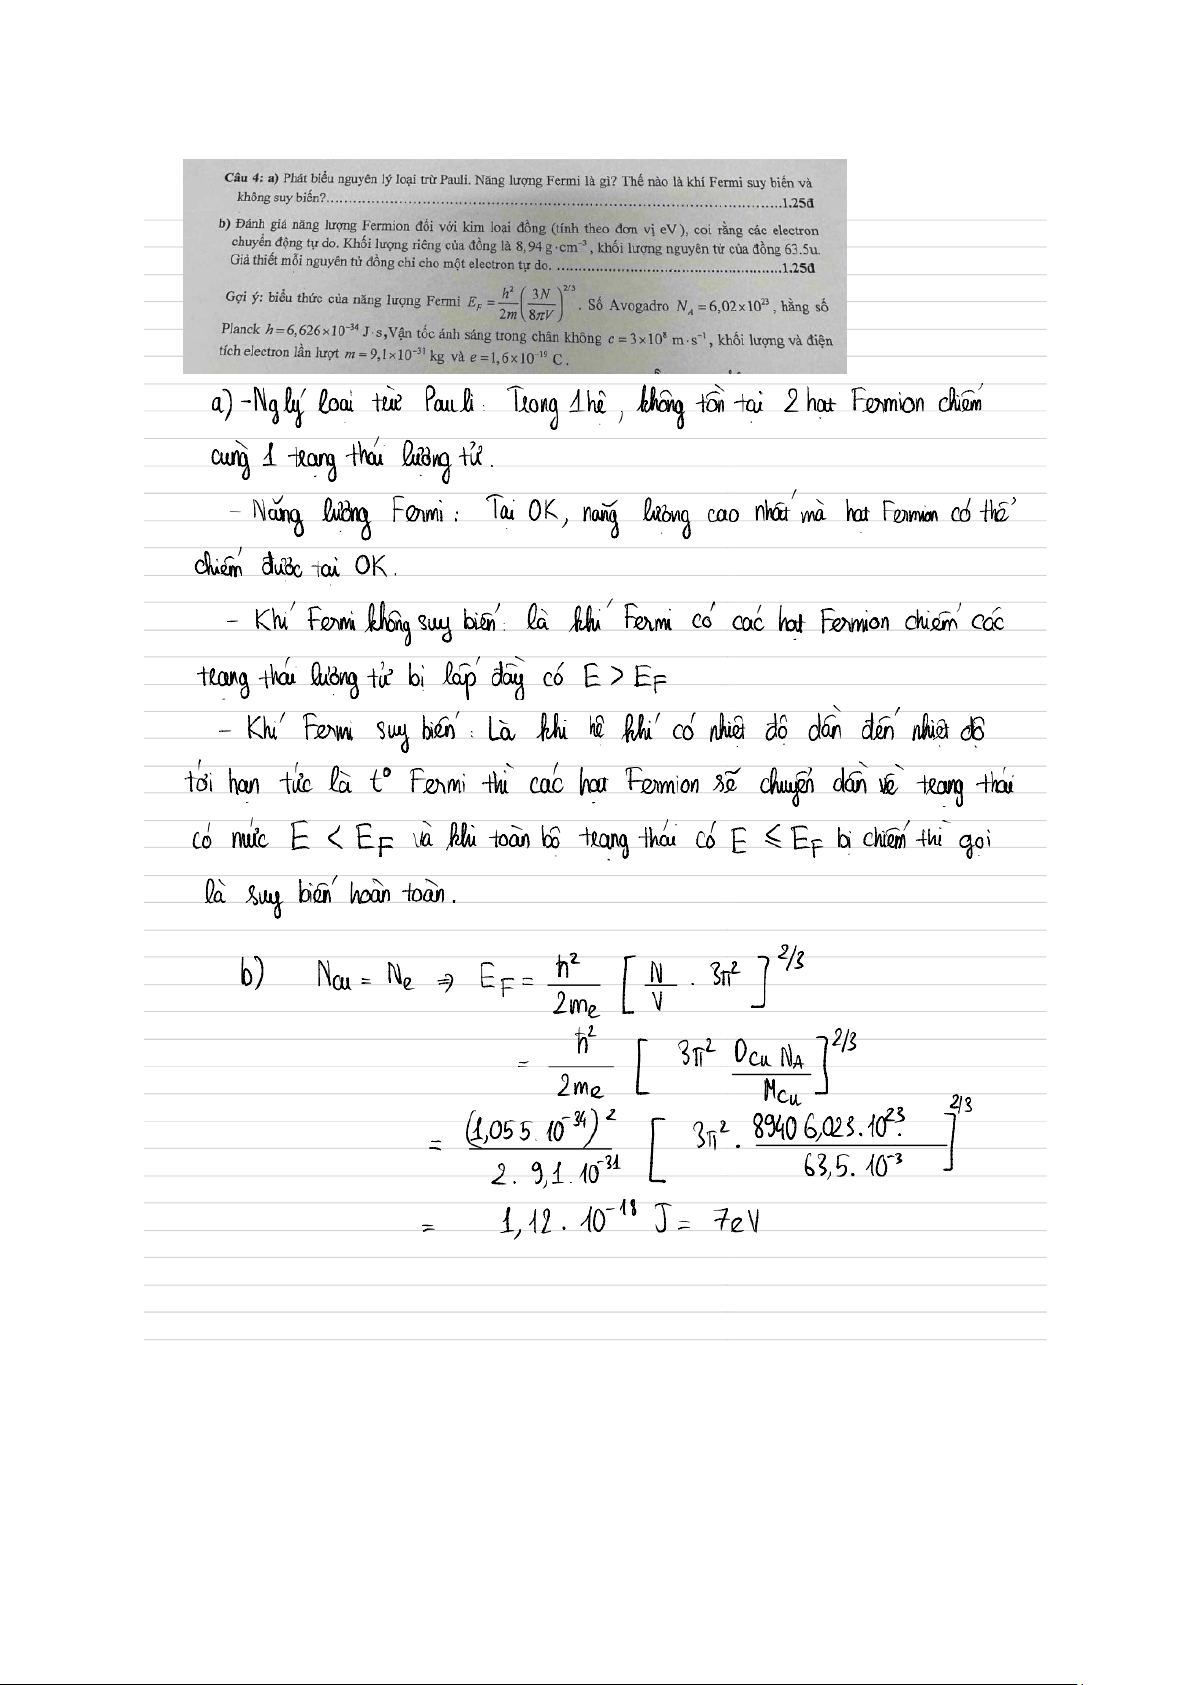 Câu 4: a) Phát biểu nguyên lý loại trừ Pauli. Năng lượng Fermi là gì? Thế nào là khí Fermi suy biến và
không suy biến?..........1.25đ
b) Đánh giá năng lượng Fermion đối với kim loại đồng (tính theo đơn vị eV), coi rằng các electron
chuyển động tự do. Khối lượng riêng của đồng là 8,94 g·cm⁻³, khối lượng nguyên tử của đồng 63.5u.
Giả thiết mỗi nguyên tử đồng chỉ cho một electron tự do. ..........1.25đ
Gợi ý: biểu thức của năng lượng Fermi E_F = h²/2m (3N/8πV)^2/3. Số Avogadro N_A = 6,02×10²³, hằng số
Planck h = 6,626×10⁻³⁴ J·s, Vận tốc ánh sáng trong chân không c = 3×10⁸ m·s⁻¹, khối lượng và điện
tích electron lần lượt m = 9,1×10⁻³¹ kg và e = 1,6×10⁻¹⁹ C.
a) - Ng lý loại trừ Pauli: Trong 1 hệ, không tồn tại 2 hạt Fermion chiếm
cùng 1 trạng thái lượng tử.
- Năng lượng Fermi: Tại 0K, năng lượng cao nhất mà hạt Fermion có thể
chiếm được tại 0K.
- Khí Fermi không suy biến: là khí Fermi có các hạt Fermion chiếm các
trạng thái lượng tử bị lấp đầy có E > E_F
- Khí Fermi suy biến: Là khi hệ khí có nhiệt độ dần đến nhiệt độ
tới hạn tức là t° Fermi thì các hạt Fermion sẽ chuyển dần về trạng thái
có mức E < E_F và khi toàn bộ trạng thái có E ≤ E_F bị chiếm thì gọi
là suy biến hoàn toàn.
b) N_Cu = N_e ⇒ E_F = ħ²/2m_e [N/V . 3π²]^2/3
= ħ²/2m_e [3π² D_Cu N_A/M_Cu]^2/3
= (1,055.10⁻³⁴)²/2. 9,1.10⁻³¹ [3π². 8940 6,023.10²³/63,5.10⁻³]^2/3
= 1,12.10⁻¹⁸ J = 7eV